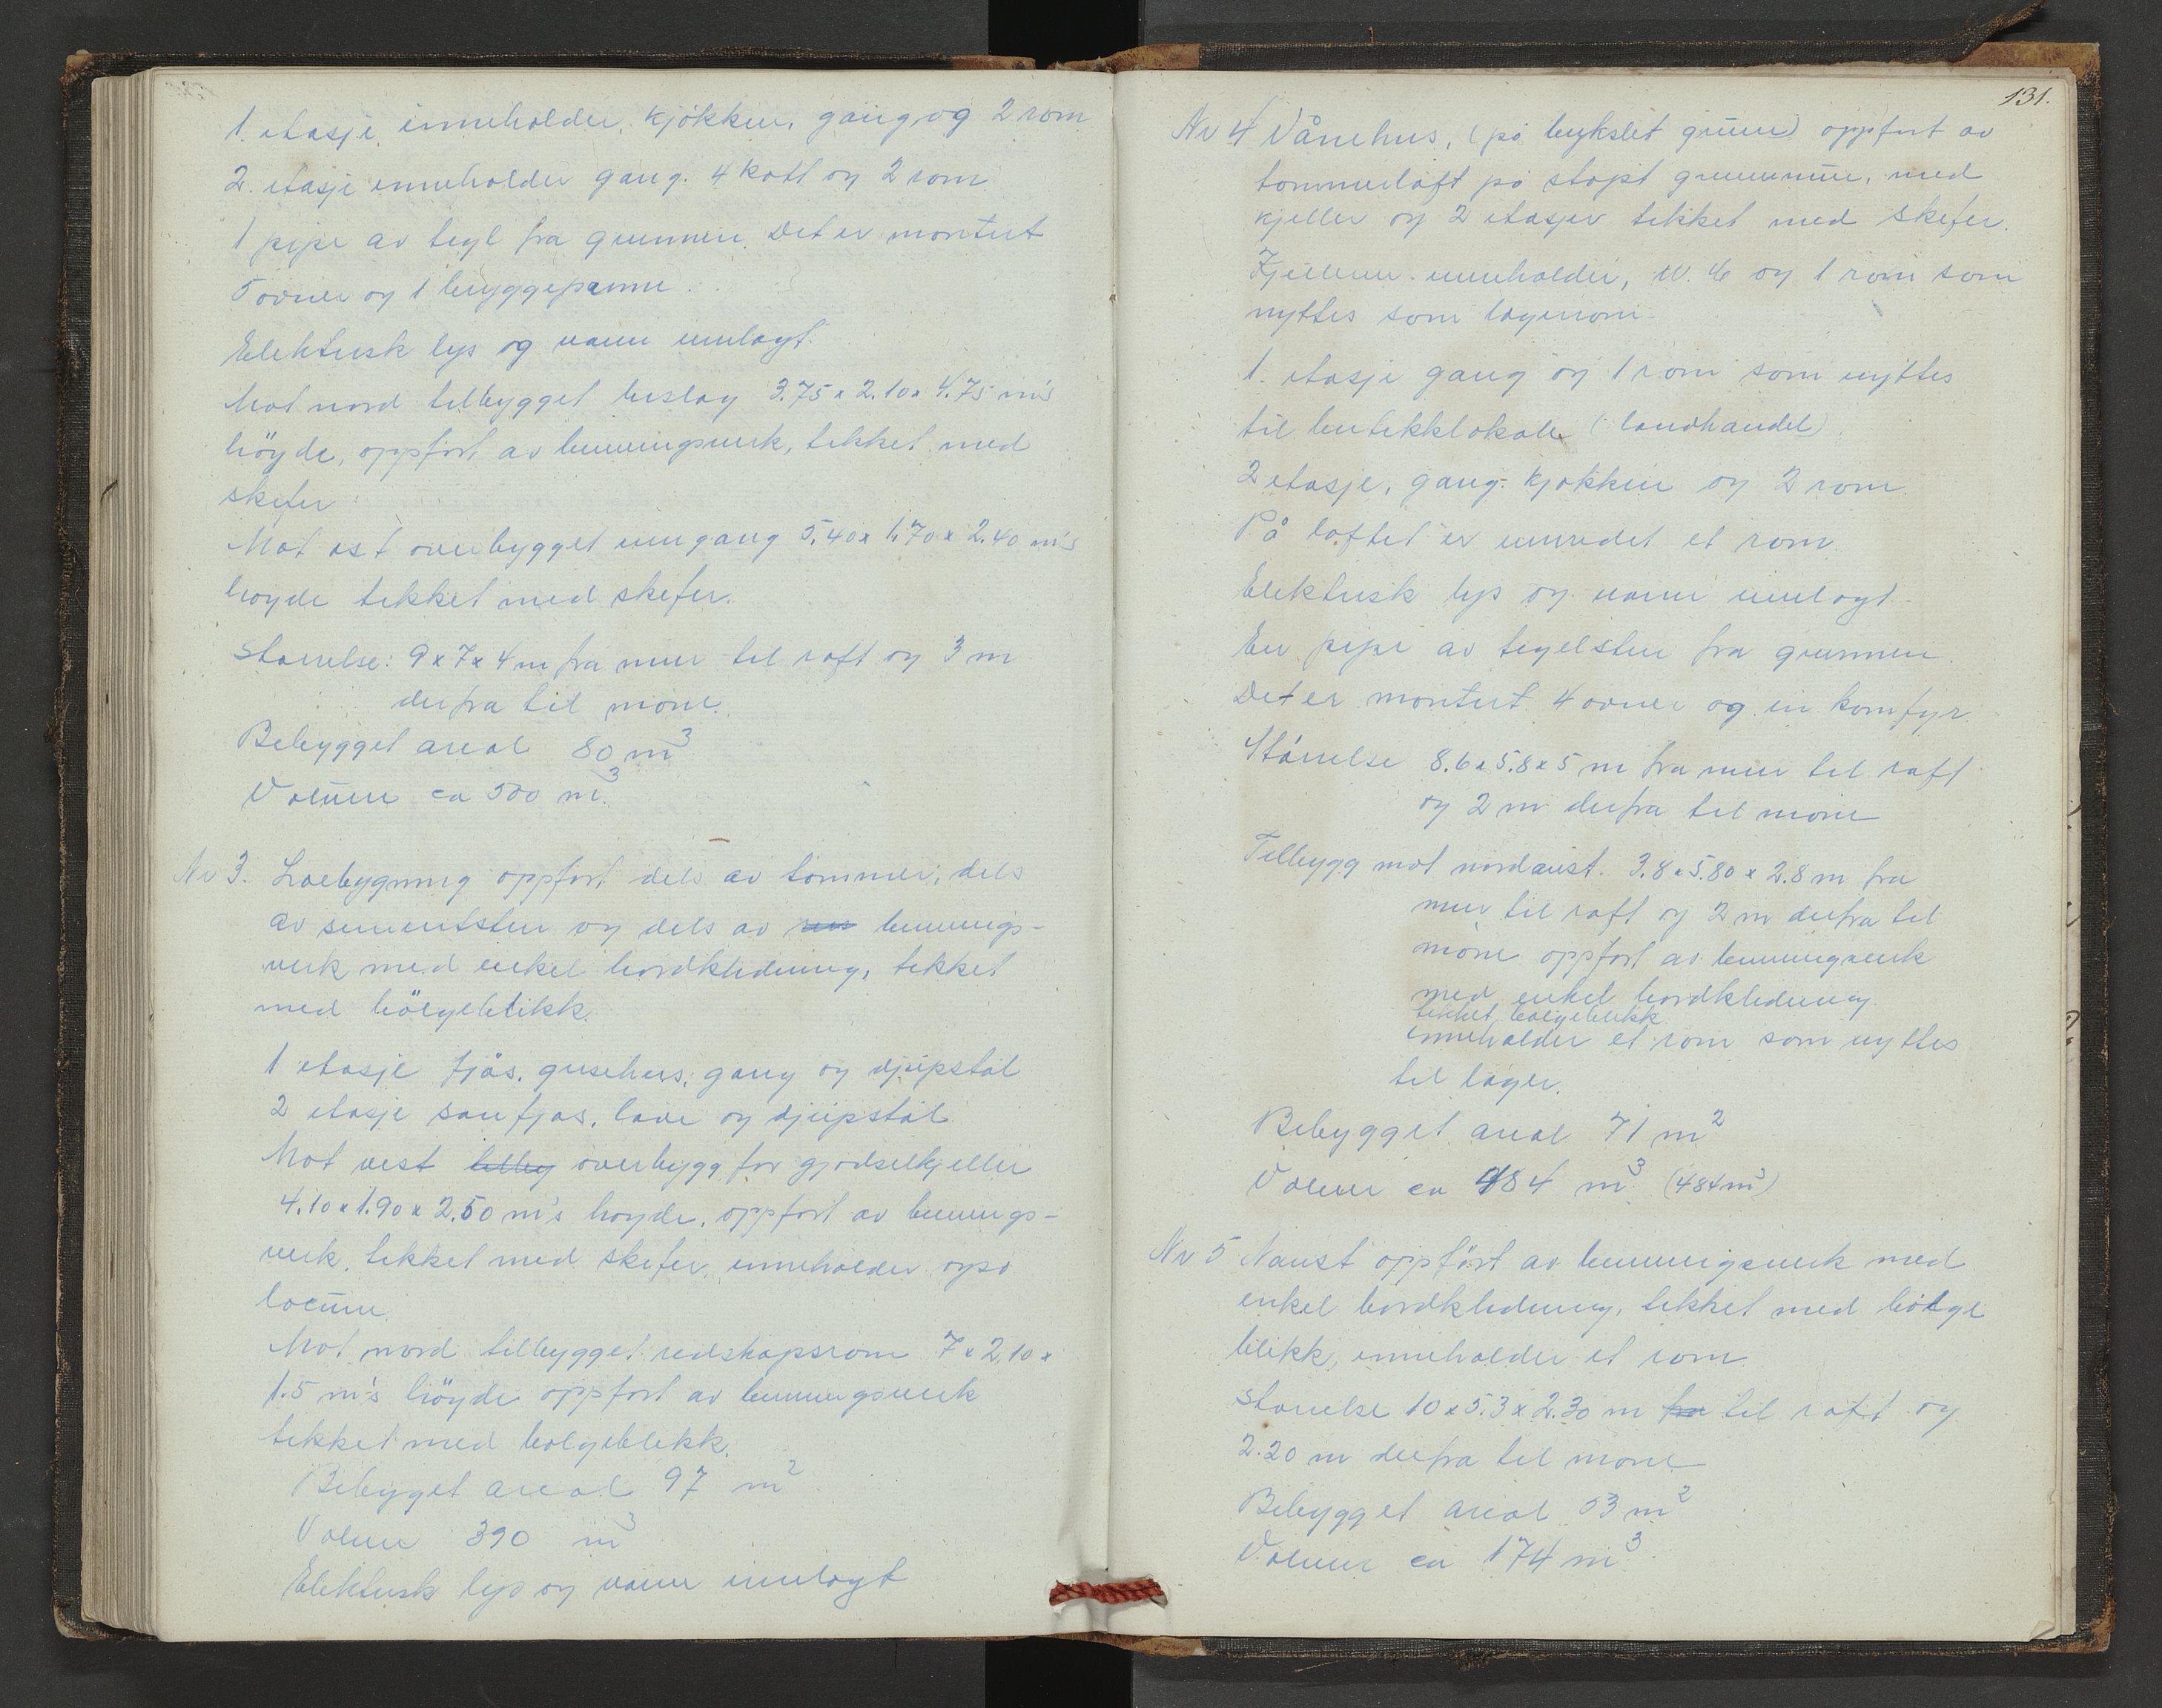 1. etasje inneholder, kjøkken, gang og 2 rom
2. etasje inneholder gang. 4 kott og 2 rom
1 pipe av tegl fra grunnen. Det er montert
5 ovner og 1 bryggepanne.
Elektrisk lys og vann innlagt.
Mot nord tilbygget bislag 3.75 x 2.10 x 4.75 m's
höyde, oppført av binningsverk, tekket med
skifer
Mot øst overbygget inngang 5.40 x 1.70 x 2.40 m's
høyde tekket med skifer.
Størrelse: 9 x 7 x 4 m fra mur til raft og 3 m
derfra til møne.
Bebygget areal 80 m³
Volum ca 500 m³.
Nr 3. Løebygning oppført dels av tømmer, dels
av sementsten og dels av binnings-
verk med enkel bordkledning, tekket
med bölgeblikk.
1 etasje fjös. grisehus, gang og djupstål
2 etasje saufjøs, løve og djupstål
Mot vest tilby overbygg for gjødselkjeller
4.10 x 1.90 x 2.50 m's høyde, oppført av binnings-
verk. tekket med skifer, inneholder også
locum.
Mot nord tilbygget redskapsrom 7 x 2.10 x
1.5 m's höyde oppført av binningsverk
tekket med bølgeblikk.
Bebyget areal 97 m²
Volum 390 m³
Elektrisk lys og vann innlagt
131.
Nr 4 Vånehus, (på bykslet grunn) oppført av
tømmerlaft på støpt grunnmur, med
kjeller og 2 etasjer tekket med skifer.
Kjelleren inneholder, W.C og 1 rom som
nyttes som lagerrom.
1. etasje gang og 1 rom som nyttes
til butikklokale (landhandel)
2 etasje, gang. kjøkken og 2 rom
På loftet er innredet et rom.
Elektrisk lys og vann innlagt.
En pipe av tegelsten fra grunnen
Det er montert 4 ovner og en komfyr
Störrelse 8.6 x 5.8 x 5 m fra mur til raft
og 2 m derfra til møne
Tilbygg mot nordaust. 3.8 x 5.80 x 2.8 m fra
mur til raft og 2 m derfra til
møne oppført av binningsverk
med enkel bordkledning
tekket bølgeblikk
inneholder et rom som nyttes
til lager.
Bebygget areal 71 m²
Volum ca 484 m³ (484 m³)
Nr 5 Naust oppført av binningsverk med
enkel bordkledning, tekket med bölge
blikk, inneholder et rom.
størrelse 10 x 5.3 x 2.30 m fra til raft og
2.20 m derfra til møne
Bebygget areal 53 m²
Volum ca 174 m³